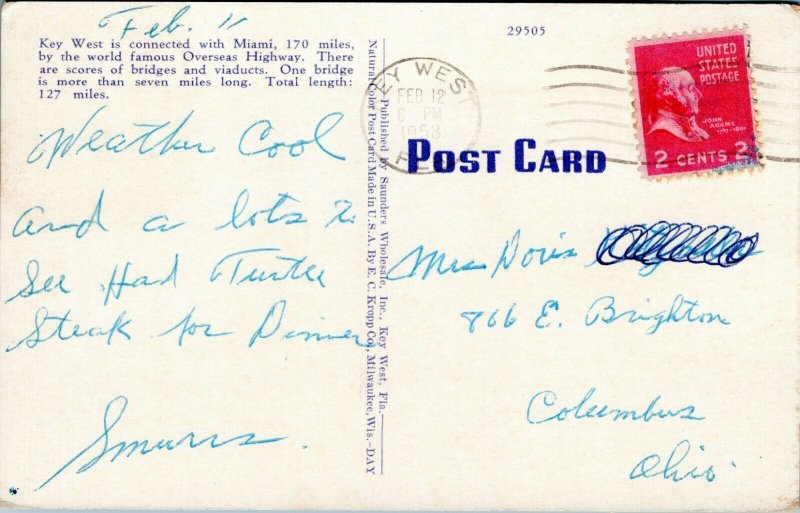 Feb. 11
Key West is connected with Miami, 170 miles,
by the world famous Overseas Highway. There
are scores of bridges and viaducts. One bridge
is more than seven miles long. Total length:
127 miles.
Weather Cool
and a lots to
See Had Turtle
Steak for Dinner
Published by Saunders Wholesale, Inc., Key West, Fla.
Natural Color Post Card Made in U.S.A. By E. C. Kropp Co., Milwaukee, Wis.—DAY
29505
KEY WEST
FEB 12
6 PM
1953
FLA
UNITED
STATES
POSTAGE
JOHN
ADAMS
1797-1801
2 CENTS 2
POST CARD
Mrs Doris
866 E. Brighton
Columbus
Ohio.